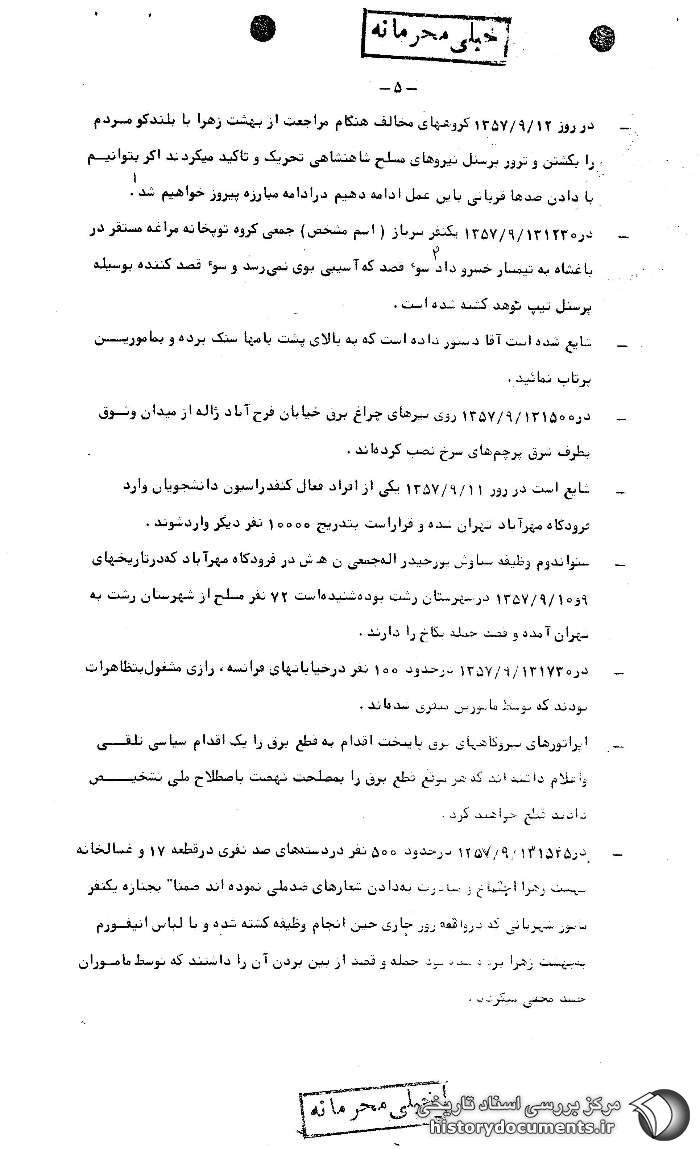 خیلی محرمانه
- ۵ -
- در روز ۱۳۵۷/۹/۱۲ گروههای مخالف هنگام مراجعت از بهشت زهرا با بلندگو مردم
را بکشتن و ترور پرسنل نیروهای مسلح شاهنشاهی تحریک و تاکید میکردند اگر بتوانیم
با دادن صدها قربانی باین عمل ادامه دهیم درادامه مبارزه پیروز خواهیم شد.
- در۱۳۵۷/۹/۱۳۱۲۳۰ یکنفر سرباز ( اسم مشخص) جمعی گروه توپخانه مراغه مستقر در
باغشاه به تیمسار خسرو داد سوء قصد که آسیبی بوی نمی‌رسد و سوء قصد کننده بوسیله
پرسنل تیپ نوهد کشته شده است .
- شایع شده است آقا دستور داده است که به بالای پشت بامها سنگ برده و بمامورین
پرتاب نمائید .
- در۱۳۵۷/۹/۱۳۱۵۰۰ روی تیرهای چراغ برق خیابان فرح آباد ژاله از میدان وثوق
بطرف شرق پرچم‌های سرخ نصب کرده‌اند .
- شایع است در روز ۱۳۵۷/۹/۱۱ یکی از افراد فعال کنفدراسیون دانشجویان وارد
فرودگاه مهرآباد تهران شده و قراراست بتدریج ۱۰۰۰۰ نفر دیگر واردشوند .
- ستواندوم وظیفه سیاوش پورحیدر اله‌جمعی ن ه ش در فرودگاه مهرآباد که‌درتاریخهای
۹و۱۳۵۷/۹/۱۰ در شهرستان رشت بوده‌شنیده‌است ۷۲ نفر مسلح از شهرستان رشت به
تهران آمده و قصد حمله بکاخ را دارند .
- در۱۳۵۷/۹/۱۳۱۷۳۰ درحدود ۱۰۰ نفر درخیابانهای فرانسه ، رازی مشغول‌بتظاهرات
بودند که توسط مامورین متفرق شده‌اند .
- اپراتورهای نیروگاههای برق پایتخت اقدام به قطع برق را یک اقدام سیاسی تلقی
واعلام داشته اند که هر موقع قطع برق را بمصلحت نهضت باصطلاح ملی تشخیص
دادند قطع خواهند کرد .
- در۱۳۵۷/۹/۱۳۱۵۴۵ درحدود ۵۰۰ نفر دردسته‌های صد نفری درقطعه ۱۷ و غسالخانه
بهشت زهرا اجتماع و مبادرت به‌دادن شعارهای ضدملی نموده اند ضمنا" بجنازه یکنفر
مامور شهربانی که درواقعه روز جاری حین انجام وظیفه کشته شده و با لباس انیفورم
به‌بهشت زهرا برده شده بود حمله و قصد از بین بردن آن را داشتند که توسط ماموران
جسد مخفی میگردد .
خیلی محرمانه
مرکز بررسی اسناد تاریخی
historydocuments.ir